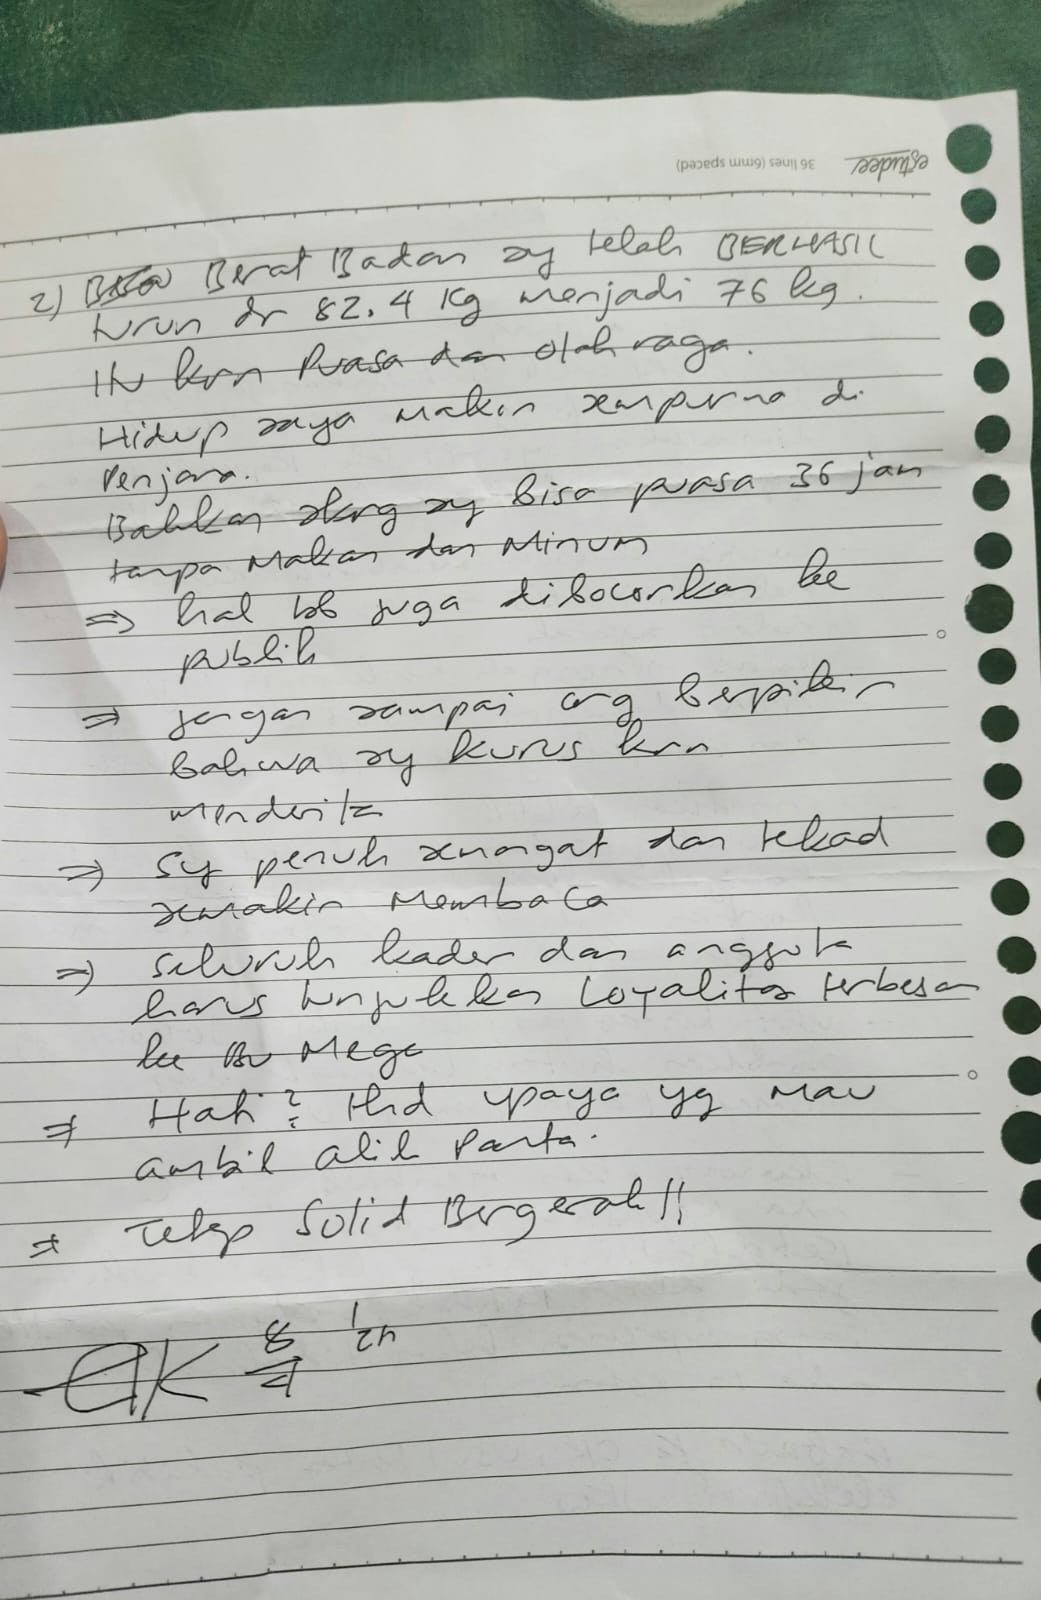 estudee 36 lines (6mm spaced)
2) Berat Badan sy telah BERHASIL
turun dr 82.4 kg menjadi 76 kg.
Itu krn Puasa dan olah raga.
Hidup saya makin sempurna di
Penjara.
Bahkan skrg sy bisa puasa 36 jam
tanpa Makan dan Minum
⇒ hal tsb juga dibocorkan ke
publik
⇒ jangan sampai org berpikir
bahwa sy kurus krn
menderita
⇒ Sy penuh semangat dan tekad
semakin Membaca
⇒ seluruh kader dan anggota
harus tunjukkan Loyalitas terbesar
ke Bu Mega
⇒ Hati² thd upaya yg mau
ambil alih Partai.
⇒ Tetap Solid Bergerak!!
8